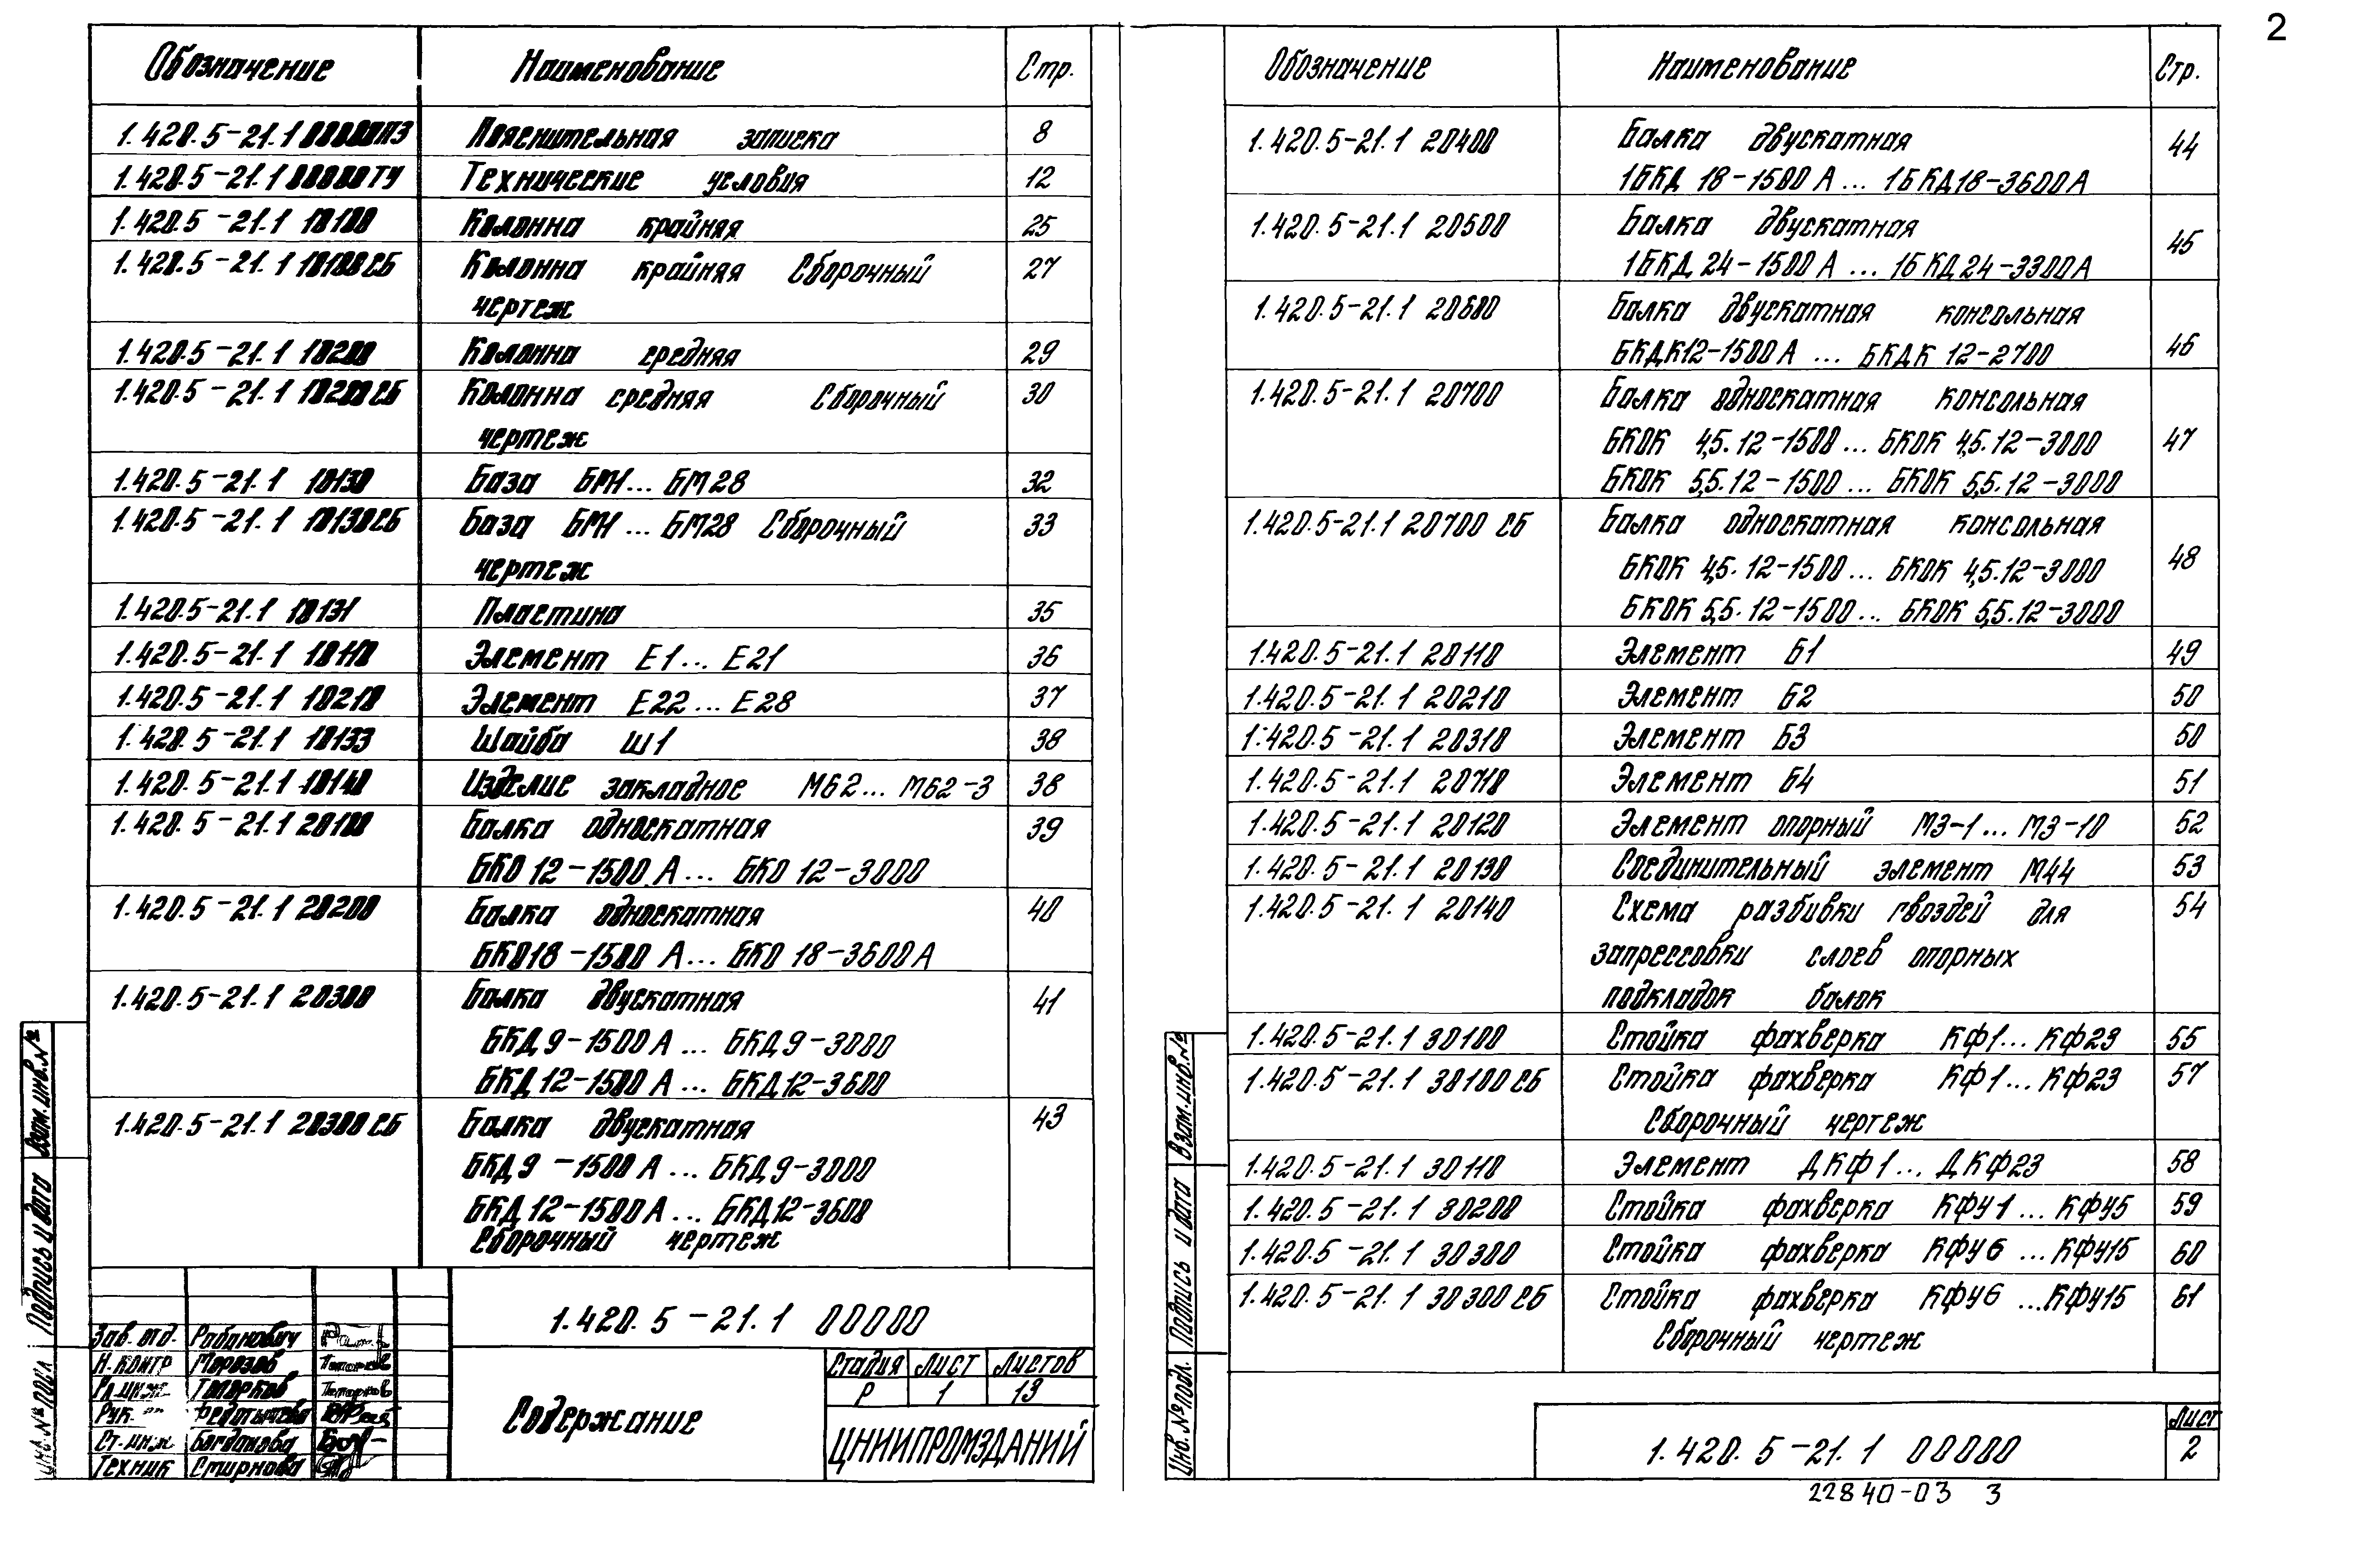 2
Обозначение Наименование Стр.
1.420.5-21.1 00000ПЗ Пояснительная записка 8
1.420.5-21.1 00000ТУ Технические условия 12
1.420.5-21.1 10100 Колонна крайняя 25
1.420.5-21.1 10100СБ Колонна крайняя Сборочный 27
чертеж
1.420.5-21.1 10200 Колонна средняя 29
1.420.5-21.1 10200СБ Колонна средняя Сборочный 30
чертеж
1.420.5-21.1 10130 База БМ1... БМ28 32
1.420.5-21.1 10130СБ База БМ1... БМ28 Сборочный 33
чертеж
1.420.5-21.1 10131 Пластина 35
1.420.5-21.1 10110 Элемент Е1... Е21 36
1.420.5-21.1 10210 Элемент Е22... Е28 37
1.420.5-21.1 10133 Шайба Ш1 38
1.420.5-21.1 10140 Изделие закладное М62... М62-3 38
1.420.5-21.1 20100 Балка односкатная 39
БКО 12-1500 А... БКО 12-3000
1.420.5-21.1 20200 Балка односкатная 40
БКО18-1500 А... БКО 18-3600А
1.420.5-21.1 20300 Балка двускатная 41
БКД 9-1500А... БКД 9-3000
БКД 12-1500А... БКД12-3600
1.420.5-21.1 20300СБ Балка двускатная 43
БКД 9-1500А... БКД 9-3000
БКД 12-1500А... БКД12-3600
Сборочный чертеж
1.420.5-21.1 00000
Зав. отд. Рабинович
Н. контр Морозов
Гл. инж Таторков
Рук.
Ст. инж Богданова
Техник Смирнова
Содержание
Стадия Лист Листов
Р 1 13
ЦНИИПРОМЗДАНИЙ
Инв. № подл Подпись и дата Взам. инв. №
Обозначение Наименование Стр.
1.420.5-21.1 20400 Балка двускатная 44
1БКД 18-1500А... 1БКД18-3600А
1.420.5-21.1 20500 Балка двускатная 45
1БКД 24-1500А... 1БКД 24-3300А
1.420.5-21.1 20600 Балка двускатная консольная 46
БКДК12-1500А... БКДК 12-2700
1.420.5-21.1 20700 Балка односкатная консольная 47
БКОК 4,5.12-1500... БКОК 4,5.12-3000
БКОК 5,5.12-1500... БКОК 5,5.12-3000
1.420.5-21.1 20700 СБ Балка односкатная консольная 48
БКОК 4,5.12-1500... БКОК 4,5.12-3000
БКОК 5,5.12-1500... БКОК 5,5.12-3000
1.420.5-21.1 20110 Элемент Б1 49
1.420.5-21.1 20210 Элемент Б2 50
1.420.5-21.1 20310 Элемент Б3 50
1.420.5-21.1 20710 Элемент Б4 51
1.420.5-21.1 20120 Элемент опорный МЭ-1... МЭ-10 52
1.420.5-21.1 20130 Соединительный элемент М44 53
1.420.5-21.1 20140 Схема разбивки гвоздей для 54
запрессовки слоев опорных
подкладок балок
1.420.5-21.1 30100 Стойка фахверка КФ1... КФ23 55
1.420.5-21.1 30100СБ Стойка фахверка КФ1... КФ23 57
Сборочный чертеж
1.420.5-21.1 30110 Элемент ДКФ1... ДКФ23 58
1.420.5-21.1 30200 Стойка фахверка КФУ1... КФУ5 59
1.420.5-21.1 30300 Стойка фахверка КФУ6... КФУ15 60
1.420.5-21.1 30300СБ Стойка фахверка КФУ6... КФУ15 61
Сборочный чертеж
1.420.5-21.1 00000
Лист
2
Инв. № подл. Подпись и дата Взам. инв. №
22840-03 3